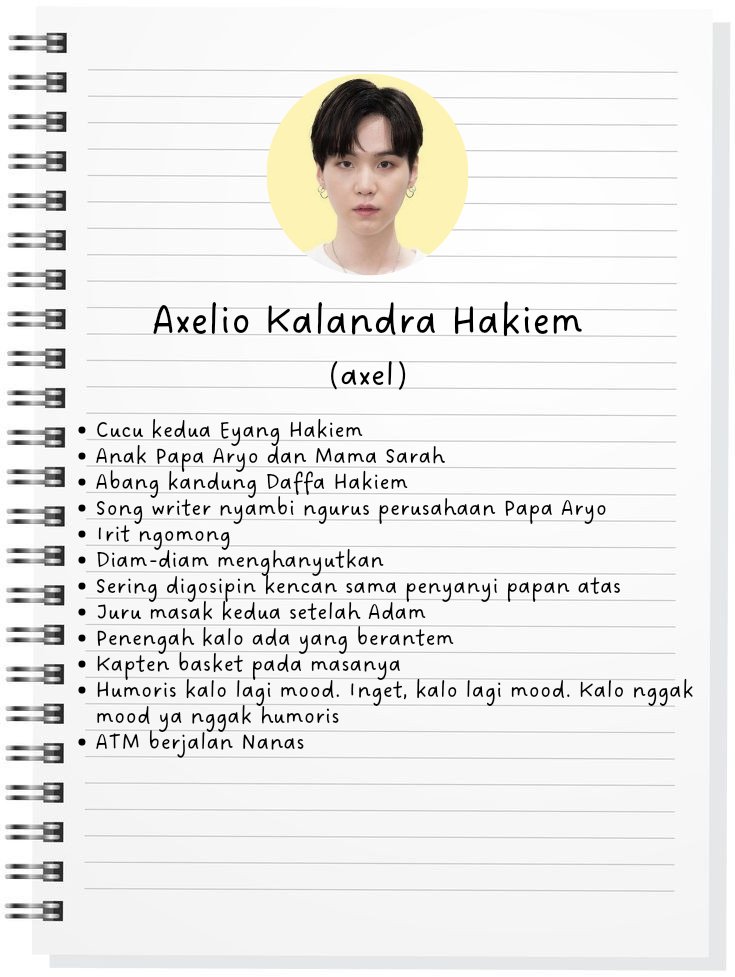 Axelio Kalandra Hakiem
(axel)
• Cucu kedua Eyang Hakiem
• Anak Papa Aryo dan Mama Sarah
• Abang kandung Daffa Hakiem
• Song writer nyambi ngurus perusahaan Papa Aryo
• Irit ngomong
• Diam-diam menghanyutkan
• Sering digosipin kencan sama penyanyi papan atas
• Juru masak kedua setelah Adam
• Penengah kalo ada yang berantem
• Kapten basket pada masanya
• Humoris kalo lagi mood. Inget, kalo lagi mood. Kalo nggak
mood ya nggak humoris
• ATM berjalan Nanas